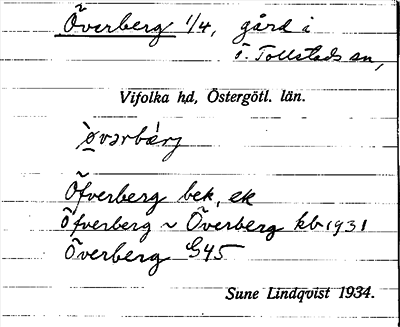 Överberg 1/4, gård i
Ö. Tollstads sn,
Vifolka hd, Östergötl. län.
Öfverberg bek, ek
Öfverberg ~ Överberg kb 1931
Överberg G45
Sune Lindqvist 1934.